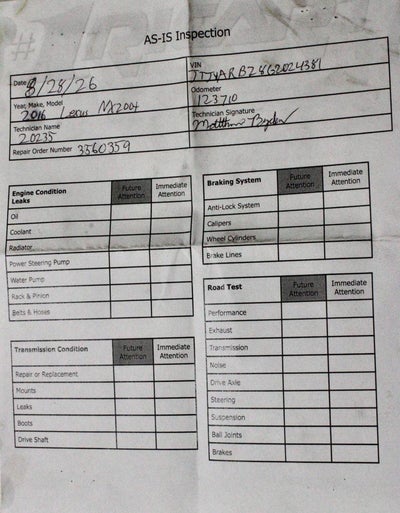 AS-IS Inspection
Date 8/28/26
VIN JTJYARBZ8G2024381
Year, Make, Model 2016 Lexus NX200t
Odometer 123710
Technician Name 20235
Technician Signature Matthew
Repair Order Number 3560359
Engine Condition Leaks Future Attention Immediate Attention
Oil
Coolant
Radiator
Power Steering Pump
Water Pump
Rack & Pinion
Belts & Hoses
Transmission Condition Future Attention Immediate Attention
Repair or Replacement
Mounts
Leaks
Boots
Drive Shaft
Braking System Future Attention Immediate Attention
Anti-Lock System
Calipers
Wheel Cylinders
Brake Lines
Road Test Future Attention Immediate Attention
Performance
Exhaust
Transmission
Noise
Drive Axle
Steering
Suspension
Ball Joints
Brakes